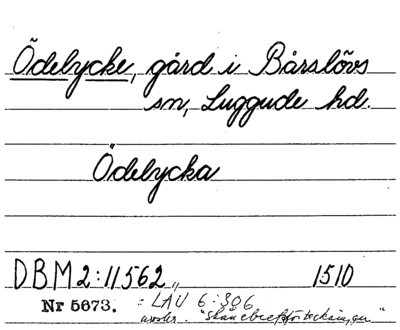 Ödelycke, gård i Bårslövs
sn, Luggude hd.
Ödelycka
DBM 2:11562 1510
Nr 5673. = LAU 6:306